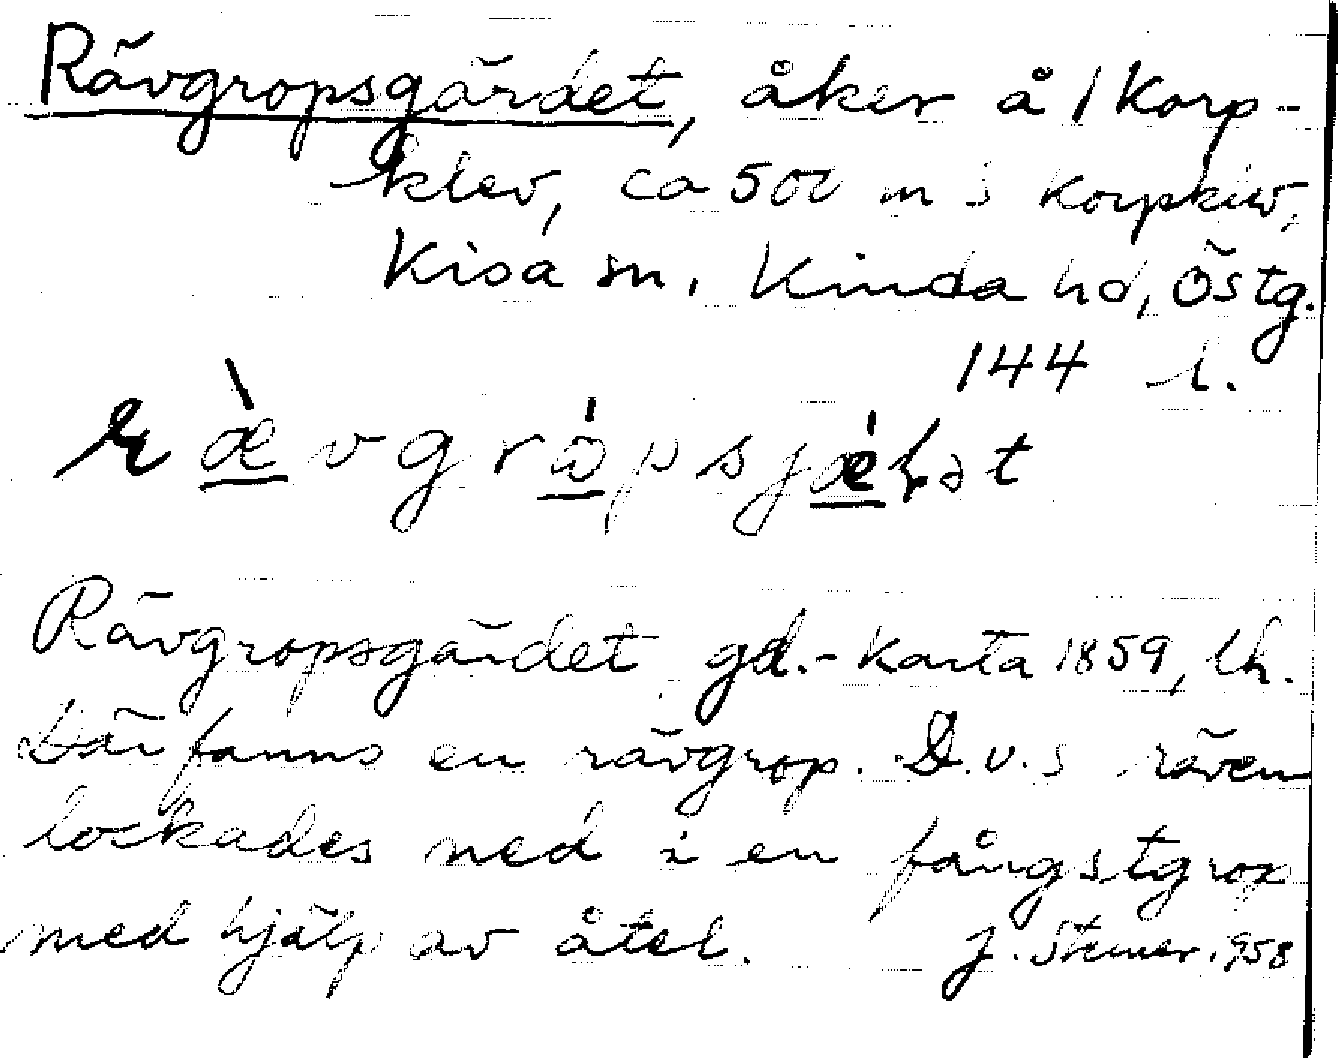 Rävgropsgärdet, åker å 1 Korp-
klev, ca 500 m S Korpklev,
Kisa sn, Kinda hd, Östg.
144 l.
Rävgropsgärdet gd.-karta 1859, lh.
Där fanns en rävgrop. D.v.s räven
lockades ned i en fångstgrop
med hjälp av åtel. J. Steiner 1958